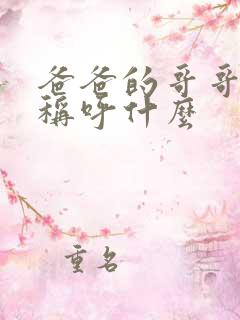 爸爸的哥哥
稱呼什麼
重名